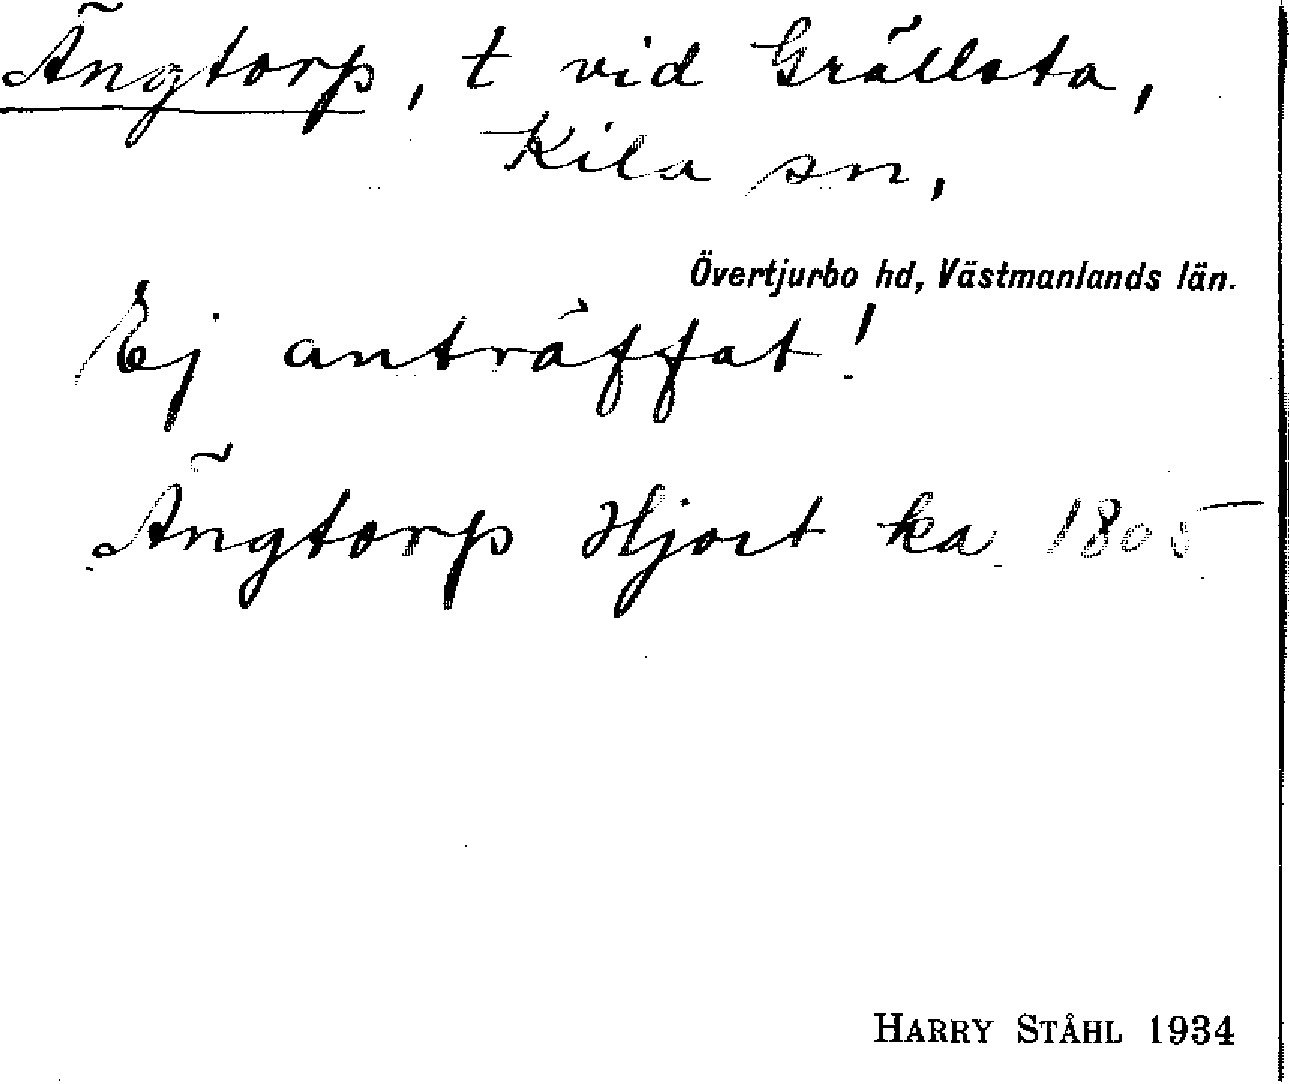 Ängtorp, t vid Grällsta,
Kila sn,
Övertjurbo hd, Västmanlands län.
Ej anträffat!
Ängtorp Hjort ka 1805
HARRY STÅHL 1934